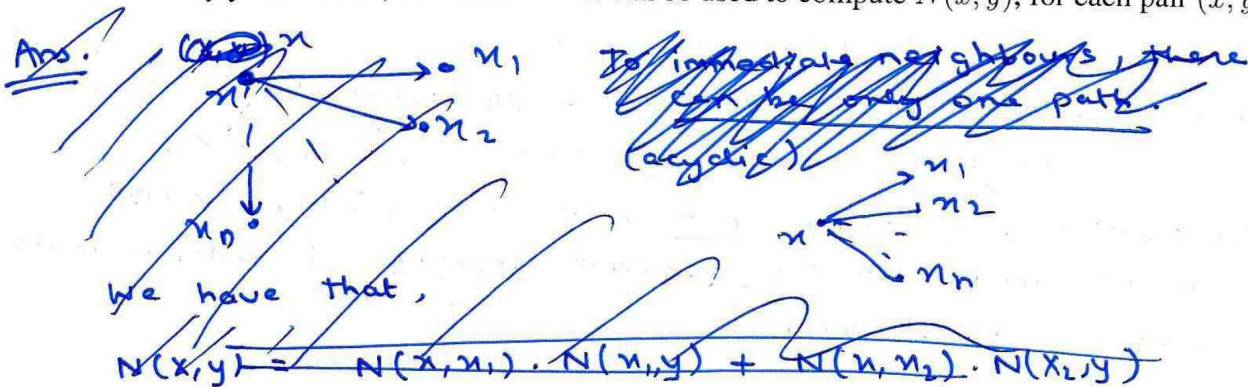 be used to compute N(x, y), for each pair (x, y
Ans.
x
x
x1
x2
xn
To immediate neighbours, there
can be only one path.
(acyclic)
x
x1
x2
xn
We have that,
N(x,y) = N(x,x1) . N(x1,y) + N(x,x2) . N(x2,y)